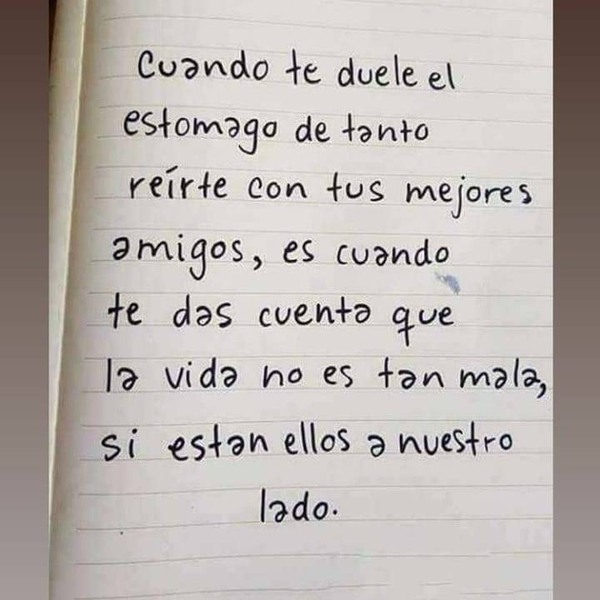 Cuando te duele el
estomago de tanto
reírte con tus mejores
amigos, es cuando
te das cuenta que
la vida no es tan mala,
si estan ellos a nuestro
lado.